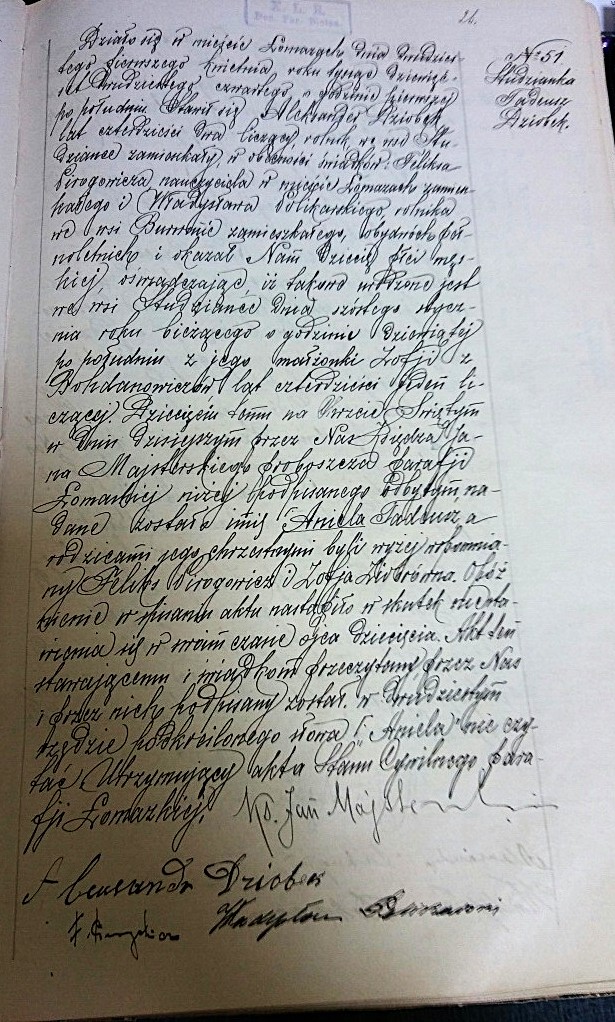 21.
№ 51
Studzianka
Tadeusz
Dziobek.
Działo się w mieście Łomazach dnia dwudzies-
tego pierwszego kwietnia roku tysiąc dziewięć-
set trzydziestego czwartego o godzinie pierwszej
po południu. Stawił się Aleksander Dziobek
lat czterdzieści dwa liczący, rolnik we wsi Stu-
dziance zamieszkały, w obecności świadków: Feliksa
Pirogowicza nauczyciela w mieście Łomazach zamiesz-
kałego i Władysława rolnika
we wsi zamieszkałego, obydwóch peł-
noletnich i okazał Nam Dziecię płci męs-
kiej, oświadczając, iż takowe urodzone jest
we wsi Studziance dnia szóstego stycz-
nia roku bieżącego o godzinie dziewiątej
po południu z jego małżonki Zofji z
Bohdanowiczów lat czterdzieści jeden li-
czącej. Dziecięciu temu na Chrzcie Świętym
w dniu dzisiejszym przez Nas Księdza Ja-
na Majsterskiego proboszcza parafji
Łomaskiej niżej podpisanego odbytym, na-
dane zostało imię "Aniela" Tadeusz, a
rodzicami jego chrzestnymi byli wyżej wspomnia-
ny Feliks Pirogowicz i Zofja. Opóź
nienie w spisaniu aktu nastąpiło w skutek niesta-
wienia się w swoim czasie ojca dziecięcia. Akt ten
stawającemu i świadkom przeczytany, przez Nas
i przez nich podpisany został. w dwudziestym
rzędzie podkreślonego słowa "Aniela" nie czy-
tać. Utrzymujący akta Stanu Cywilnego para-
fji Łomaskiej:
Ks. Jan Majster
Aleksander Dziobek
Władysław